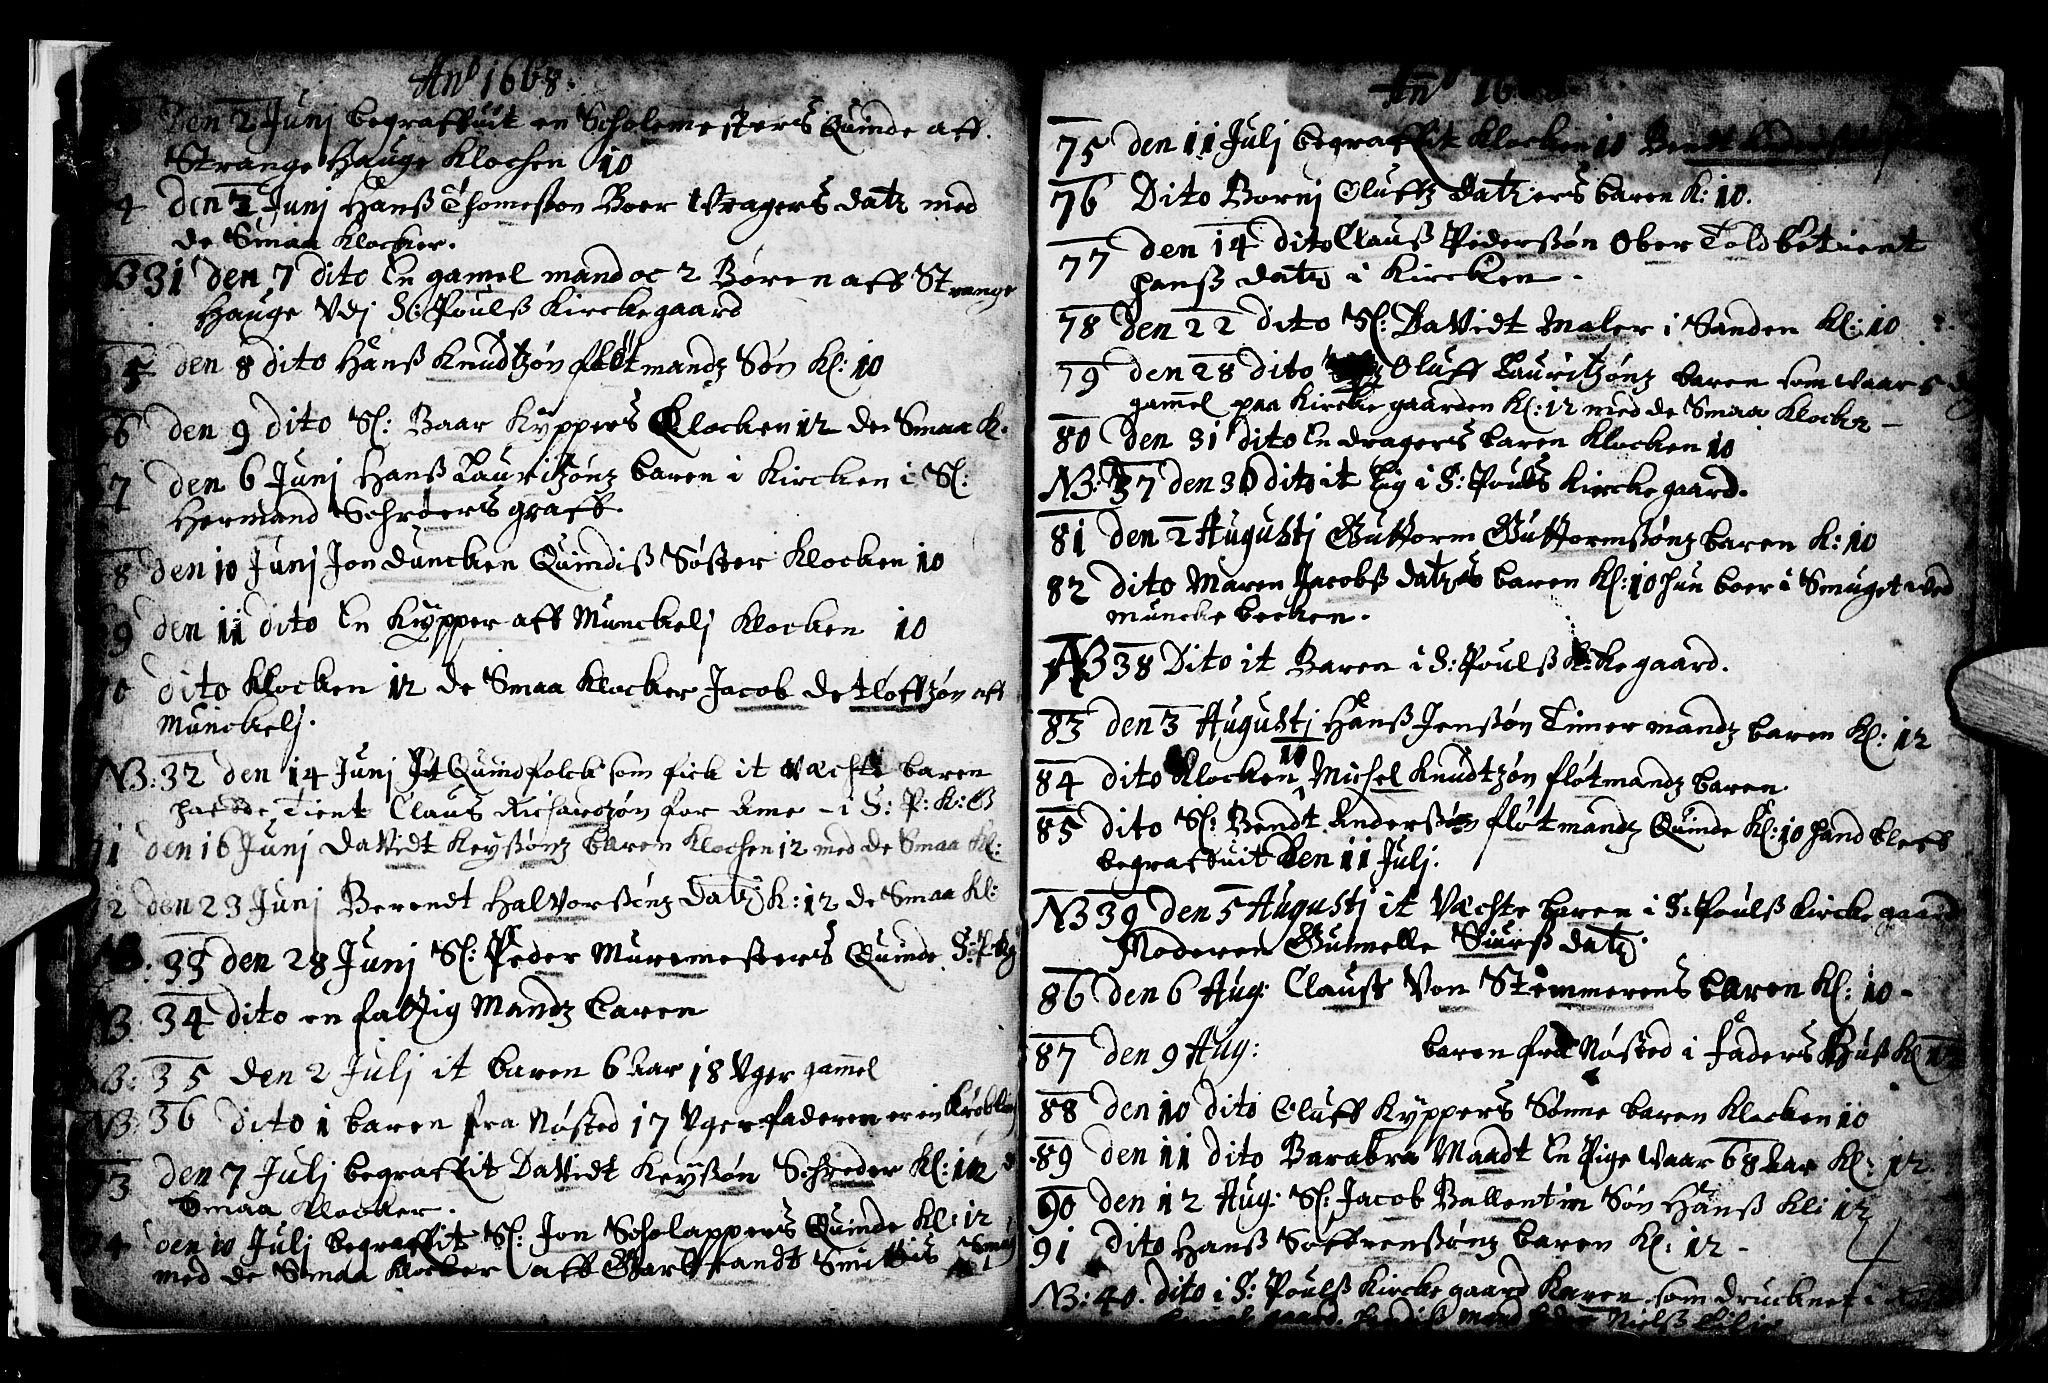 Anº 1668.
Den 2 Junj begraffuit en Scholemesters Quinde aff
Strange Hauge Klochen 10
4 den 2 Junj Hanß Thomeßon Boer Vragers datz med
de Smaa Klocker.
NB 31 den 7 dito En gamel mand oc 2 Børen aff Strange
Hauge Vdj St: Poulß Kirckegaard
5 den 8 dito Hanß Knudtzøn fløtmandz Søn Kl: 10
6 den 9 dito Sl: Baar Kyppers Klocken 12 de Smaa K.
7 den 6 Junj Hanß Lauritzønz baren i Kircken i Sl:
Hermand Schrøers graff.
8 den 10 Junj Jon Duncken Quindiß Søster Klocken 10
9 den 11 dito En Kypper aff Munckelj Klocken 10
10 dito Klocken 12 de Smaa Klocker Jacob detløffzøn aff
Munckelj.
NB: 32 den 14 Junj It Quindfolck som fick it Vechte baren
haffde Tient Claus Richardzøn for Ame – i S: P: K: G
11 den 16 Junj Davidt Keyßønz baren Klochen 12 med de Smaa Kl:
12 den 23 Junj Berendt Halvorßønz Datz K: 12 de Smaa Kl:
NB: 33 den 28 Junj Sl: Peder Muremesters Quinde S: P: Kg
NB: 34 dito en fattig Mandz baren
NB: 35 den 2 Julj it baren 6 Aar 18 Vger gamel
NB: 36 dito 1 baren fra Nøsted 17 Vger faderen er en Krøbling
73 den 7 Julj begraffit Davidt Keyßøn Schreder Kl: 12 d
Smaa Klocker.
74 den 10 Julj begraffit Sl: Jon Scholappers Quinde Kl: 12
med de Smaa Klocker aff Garbrandt Smittis Smug
Anº 16
75 den 11 Julj begraffit Klocken 10 Bendt Anders
76 Dito Børnj Oluffz Datziers baren K: 10.
77 den 14 dito Clauß Pederßøn Ober Toldbetient
hanß datz i Kircken.
78 den 22 dito Sl: Davidt Maler i Sanden Kl: 10
79 den 28 dito Oluff Lauritzønz baren som waar 5 dg
gamel paa Kirckegaarden Kl: 12 med de Smaa Klocker –
80 den 31 dito En dragers baren Klocken 10
NB: 37 den 30 dito it Lig i S: Pouls Kirckegaard.
81 den 2 Augustj Guttorm Guttormßønz baren K: 10
82 dito Maren Jacobß datzes baren Kl: 10 hun boer i Smuget ved
muncke becken.
NB 38 Dito it Baren i S: Poulß K:kegaard.
83 den 3 Augustj Hanß Jenßøn Timermandz baren Kl: 12
84 dito Klocken 10 Michel Knudtzøn fløtmandz baren
85 dito Sl: Bendt Anderßøn fløtmandz Quinde Kl: 10 hand bleff
begraffuit den 11 Julj.
NB 39 den 5 Augustj it Vechte baren i S: Poulß Kirckegaard
Moderen Gunnelle Siurß datz.
86 den 6 Aug: Clauß Von Stemmerens baren Kl: 10 –
87 den 9 Aug: baren fra Nøsted i Faders Huß Kl 12
88 den 10 dito Oluff Kyppers Sønne baren Klocken 10
89 den 11 dito Barabra Maadt En Pige waar 68 aar Kl: 12
90 den 12 Aug: Sl: Jacob Ballentin Søn Hanß Kl: 12
91 dito Hanß Søffrenßønz baren Kl: 12 –
NB: 40. dito i S: Poulß Kirckegaard Karen som drucknet i
gaard. mand Nielß